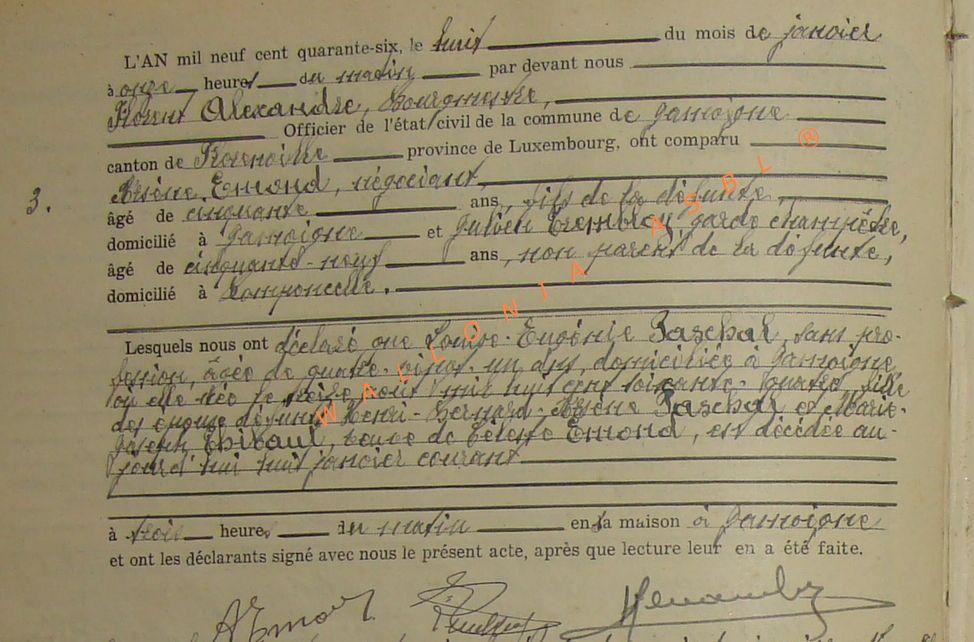 L'AN mil neuf cent quarante-six, le huit du mois de janvier
à onze heures du matin par devant nous
Florent Alexandre, Bourgmestre,
Officier de l'état civil de la commune de Jamoigne
canton de Florenville province de Luxembourg, ont comparu
Arsène Emond, négociant,
3. âgé de cinquante ans, fils de la défunte
domicilié à Jamoigne et Julien Tremblay garde champêtre,
âgé de cinquante-neuf ans, non parent de la défunte,
domicilié à
Lesquels nous ont déclaré que Louise-Eugénie Paschal, sans pro-
fession, âgée de quatre-vingt-un ans, domiciliée à Jamoigne,
où elle née le seize août mil huit cent soixante-quatre, fille
des époux défunts Henri-Bernard-Arsène Paschal et Marie-
Joseph Thibaut, veuve de Céleste Emond, est décédée au-
jourd'hui huit janvier courant
à trois heures du matin en sa maison à Jamoigne
et ont les déclarants signé avec nous le présent acte, après que lecture leur en a été faite.
AEmond
WALLONIA ASBL ®